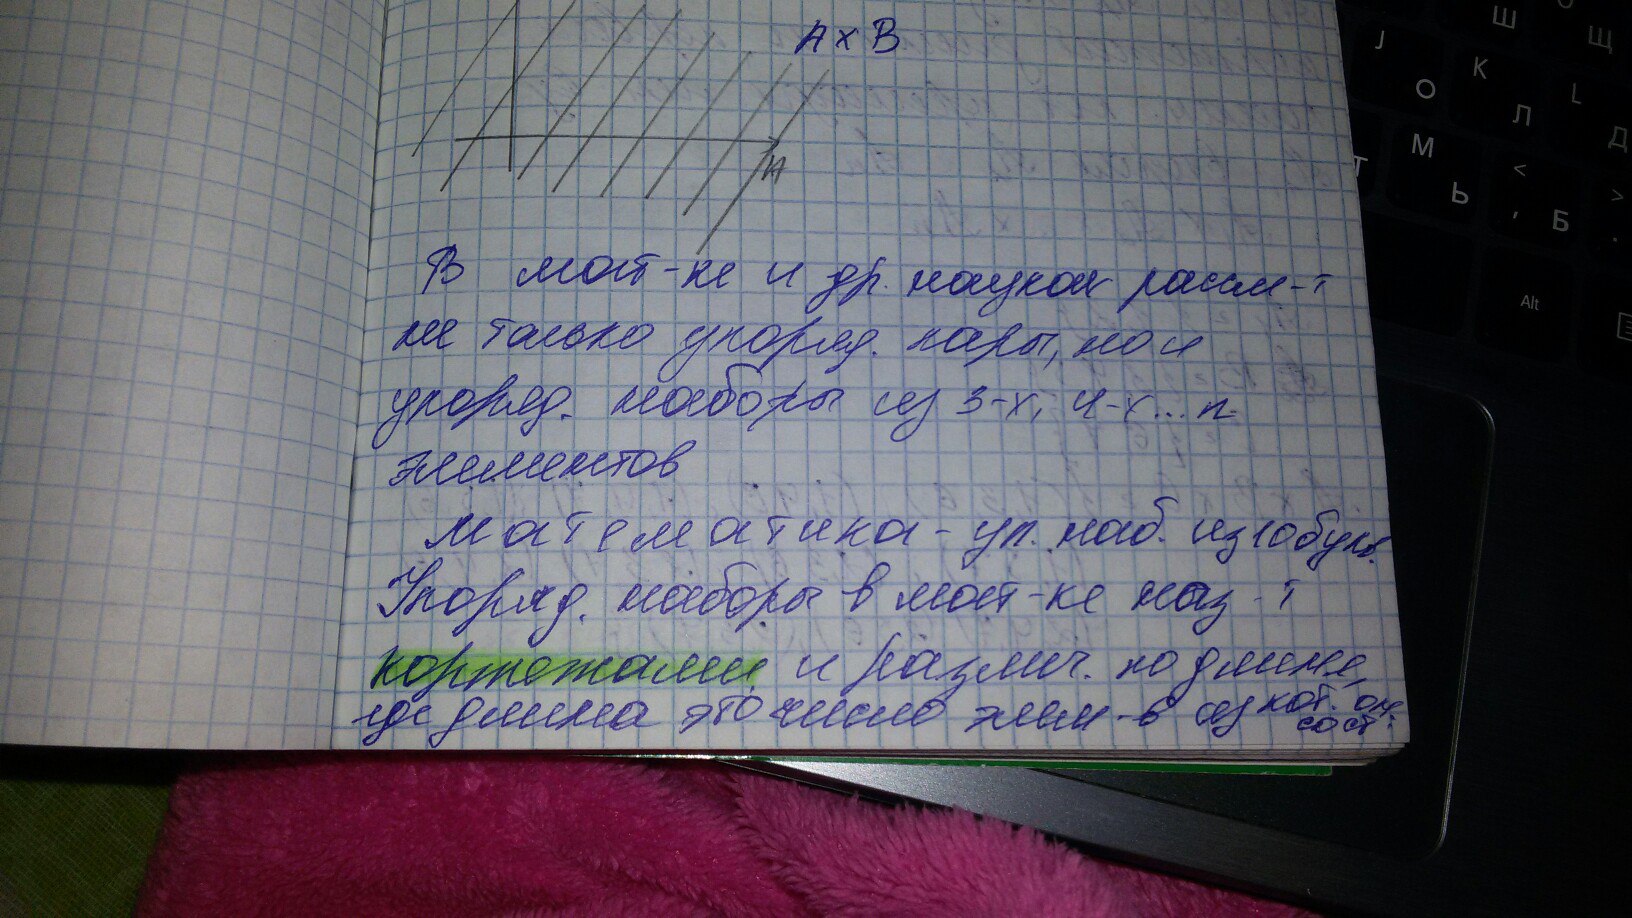 A x B
A
В мат-ке и др. науках рассм-т
не только упоряд. пары, но и
упоряд. наборы из 3-х, 4-х... n
элементов
математика - уп. наб. из 10 букв.
Упоряд. наборы в мат-ке наз-т
кортежами и различ. по длине,
где длина это число элем-в из кот. он
сост.
Ш
Щ
J
K
L
О
Л
Д
Т
М
<
>
Ь
,
Б
.
Alt